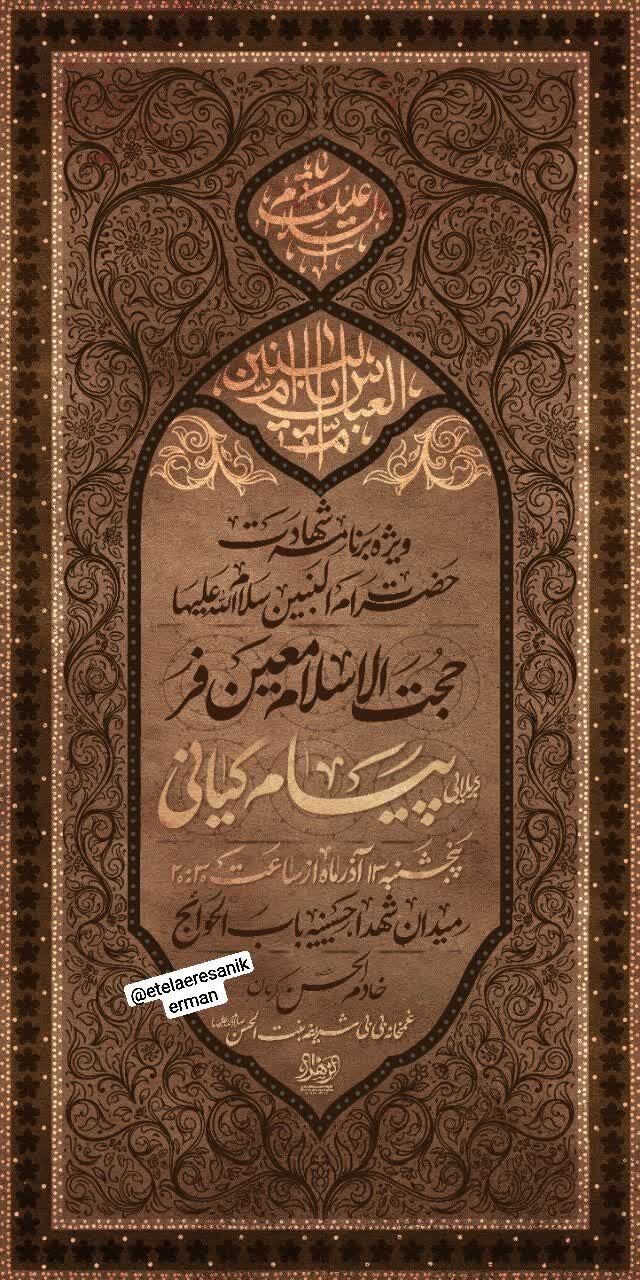 السلام علیک یا
ام البنین ام العباس
ویژه برنامه شهادت
حضرت ام البنین سلام الله علیها
حجت الاسلام معین فر
کربلایی پیام کیانی
پنجشنبه ۱۳ آذرماه از ساعت ۲۰:۳۰
میدان شهدا، حسینیه باب الحوائج
خادم الحسن کرمان
غمخانه بی بی شریفه بنت الحسن
@etelaeresanik
erman